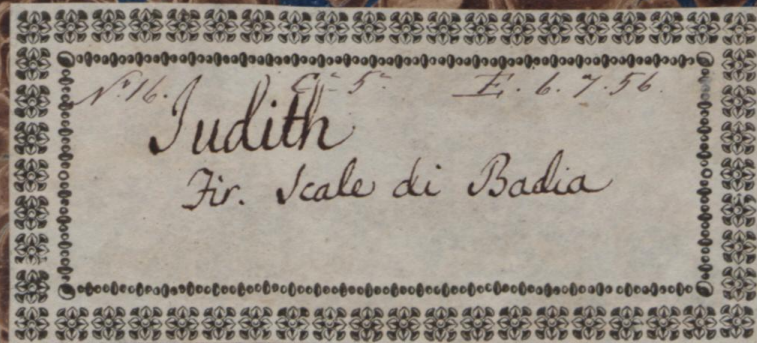 N.° 16. C.ª 5.ª E. 6. 7. 56.
Judith
Fir. Scale di Badia